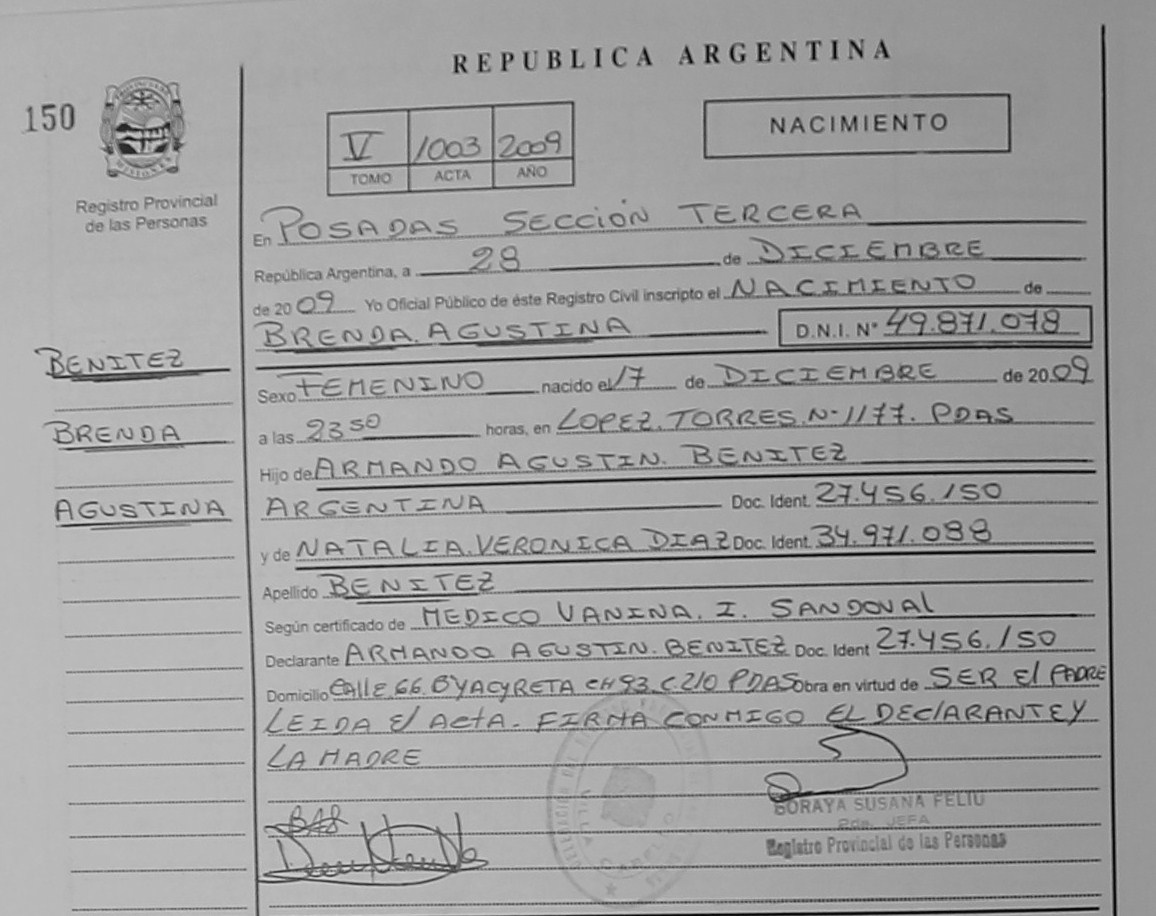 REPUBLICA ARGENTINA
150
V 1003 2009
TOMO ACTA AÑO
NACIMIENTO
MISIONES
Registro Provincial
de las Personas
En POSADAS SECCIÓN TERCERA
República Argentina, a 28 de DICIEMBRE
de 2009 Yo Oficial Público de éste Registro Civil inscripto el NACIMIENTO de
BRENDA. AGUSTINA D.N.I. N° 49.871.078
BENITEZ
Sexo FEMENINO nacido el 17 de DICIEMBRE de 2009
BRENDA
a las 23 50 horas, en LOPEZ. TORRES. N° 1177. PDAS
Hijo de ARMANDO AGUSTIN. BENITEZ
AGUSTINA
ARGENTINA Doc. Ident. 27.456.150
y de NATALIA. VERONICA DIAZ Doc. Ident. 34.971.088
Apellido BENITEZ
Según certificado de MEDICO VANINA. I. SANDOVAL
Declarante ARMANDO AGUSTIN. BENITEZ Doc. Ident 27.456.150
Domicilio Calle 66. BYACYRETA CH 93. C 210 PDAS Obra en virtud de SER El PADRE
LEIDA El ActA. FIRMA CONMIGO EL DEClARANTE Y
LA MADRE
SORAYA SUSANA FELIU
JEFA
Registro Provincial de las Personas
VILLA